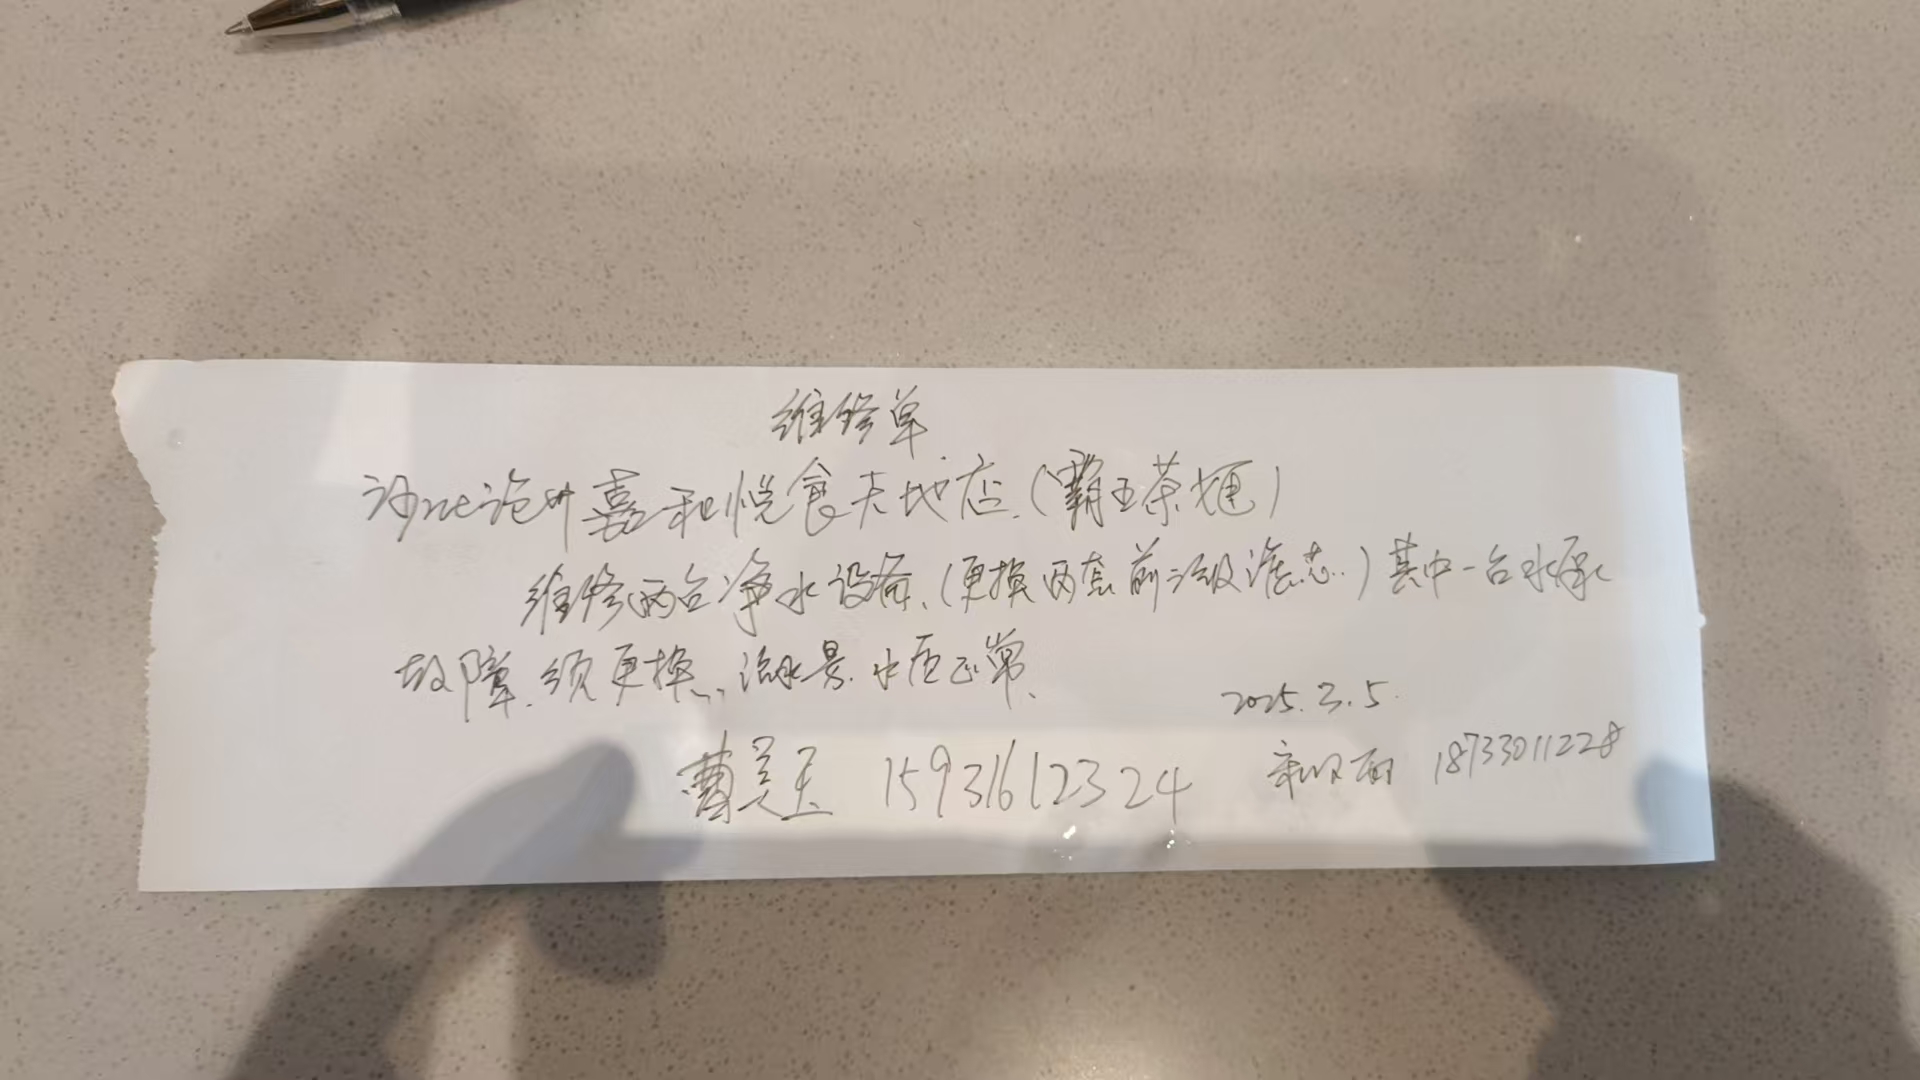 维修单
河北沧州嘉和悦食天地店.(霸王茶姬)
维修两台净水设备、(更换两套前级滤芯.)其中一台水泵
故障.须更换..,流水量.水质正常、
2025.3.5.
曹美玉 15931612324
18733011228